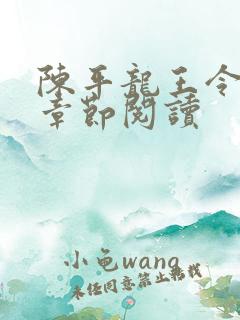 陳平龍王令
章節閱讀
小龟wang
未经同意禁止搬栈